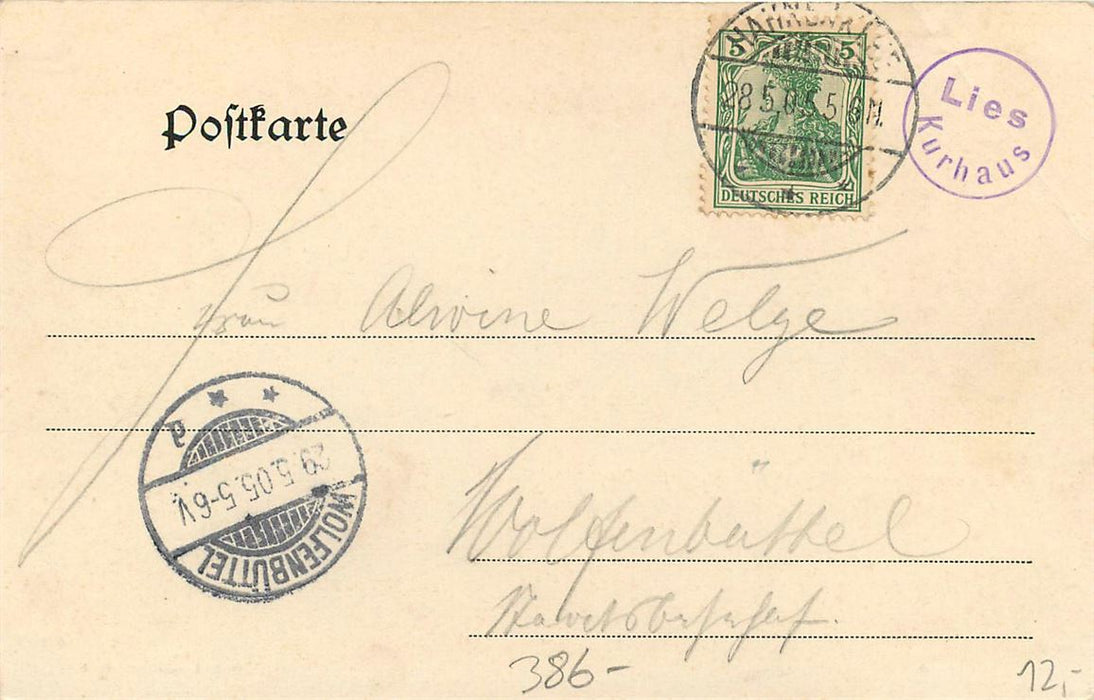 Poſtkarte
5 5
HAHNENKLEE
28.5.05.5-6N.
DEUTSCHES REICH
Lies
Kurhaus
Frau Alwine Welge
Wolfenbüttel
29.5.05.5-6V.
WOLFENBÜTTEL
Staatsbahnhof.
386-
12,-